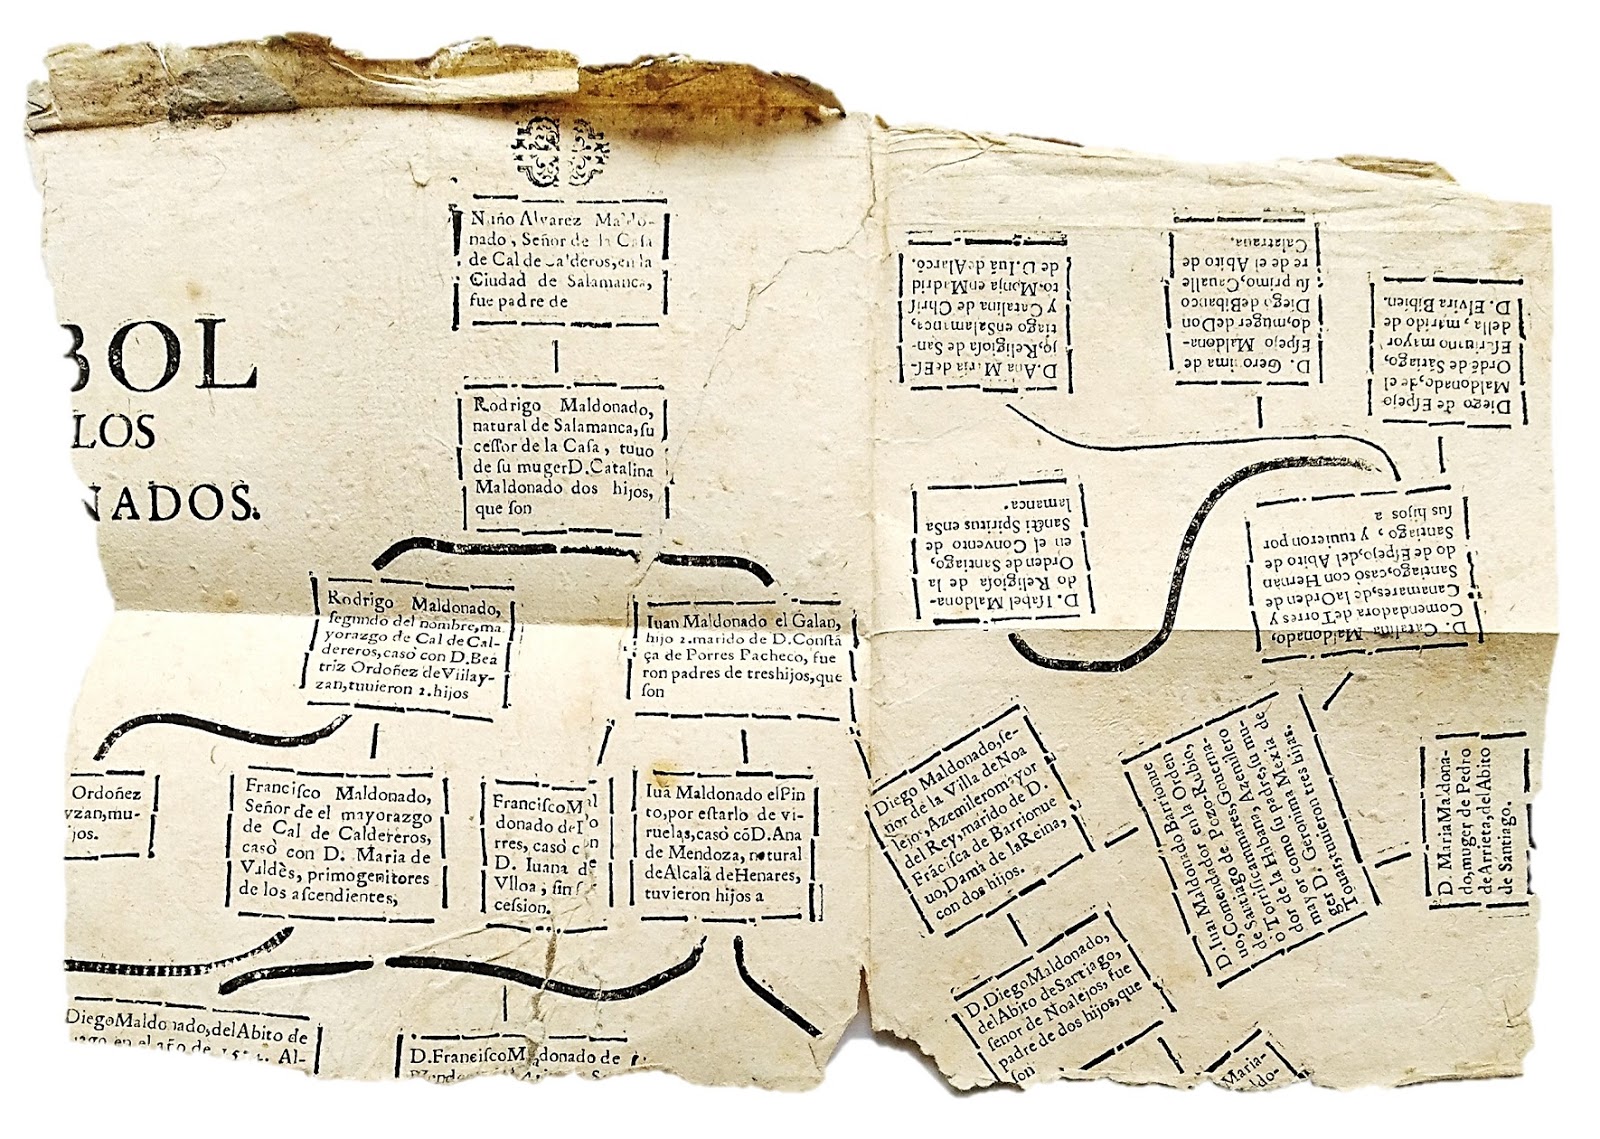 BOL
LOS
NADOS.
Nuño Alvarez Maldo-
nado, Señor de la Casa
de Cal de Calderos, en la
Ciudad de Salamanca,
fue padre de
Rodrigo Maldonado,
natural de Salamanca, ſu
ceſſor de la Caſa, tuuo
de ſu muger D. Catalina
Maldonado dos hijos,
que ſon
Rodrigo Maldonado,
ſegundo del nombre, ma
yorazgo de Cal de Cal-
dereros, casò con D. Bea
triz Ordoñez de Villay-
zan, tuuieron 2. hijos
Iuan Maldonado el Galan,
hijo 2. marido de D. Conſtã
ça de Porres Pacheco, fue
ron padres de tres hijos, que
ſon
Ordoñez
yzan, mu-
ijos.
Franciſco Maldonado,
Señor de el mayorazgo
de Cal de Caldereros,
casò con D. Maria de
Valdès, primogenitores
de los aſcendientes,
Franciſco Mal
donado de To
rres, casò con
D. Iuana de
Vlloa, ſin ſ
ceſsion.
Iuã Maldonado el Pin
to, por eſtarlo de vi-
ruelas, casò cõ D. Ana
de Mendoza, natural
de Alcalà de Henares,
tuvieron hijos a
Diego Maldonado, del Abito de
iago en el año de 1534. Al-
D. Franciſco Maldonado de
D. Ana Maria de Eſ-
jo, Religioſa de San-
tiago en Salamanca,
y Catalina de Chriſ
to, Monja en Madrid
de D. Iuã de Alarcõ.
D. Geronima de
Eſpejo Maldona-
do, muger de Don
Diego de Bibanco
ſu primo, Caualle
ro de el Abito de
Calatraua.
Diego de Eſpejo
Maldonado, de el
Ordẽ de Sãtiago,
Eſcriuano mayor
della, marido de
D. Elvira Bibien.
D. Iſabel Maldona-
do Religioſa de la
Orden de Santiago,
en el Convento de
Sancti Spiritus en Sa
lamanca.
D. Catalina Maldonado,
Comendadora de Torres y
Canamares, de la Orden de
Santiago, caso con Hernan
do de Eſpejo, del Abito de
Santiago, y tuuieron por
ſus hijos a
Diego Maldonado, ſe-
ñor de la Villa de Noa
lejos, Azemilero mayor
del Rey, marido de D.
Frãciſca de Barrionue
uo, Dama de la Reina,
con dos hijos.
D. Iuan Maldonado Barrionue
uo, Comendador en la Orden
de Santiago de Pozo-Rubio,
o Torrificammares, Gouerna-
dor de la Habana, Azemilero
mayor como ſu padre, ſu mu-
ger D. Geronima Mexia de
Touar, tuuieron tres hijas.
D. Maria Maldona-
do, muger de Pedro
de Arrieta, del Abito
de Santiago.
D. Diego Maldonado,
del Abito de Santiago,
ſenor de Noalejos, fue
padre de dos hijos, que
ſon
Maria-